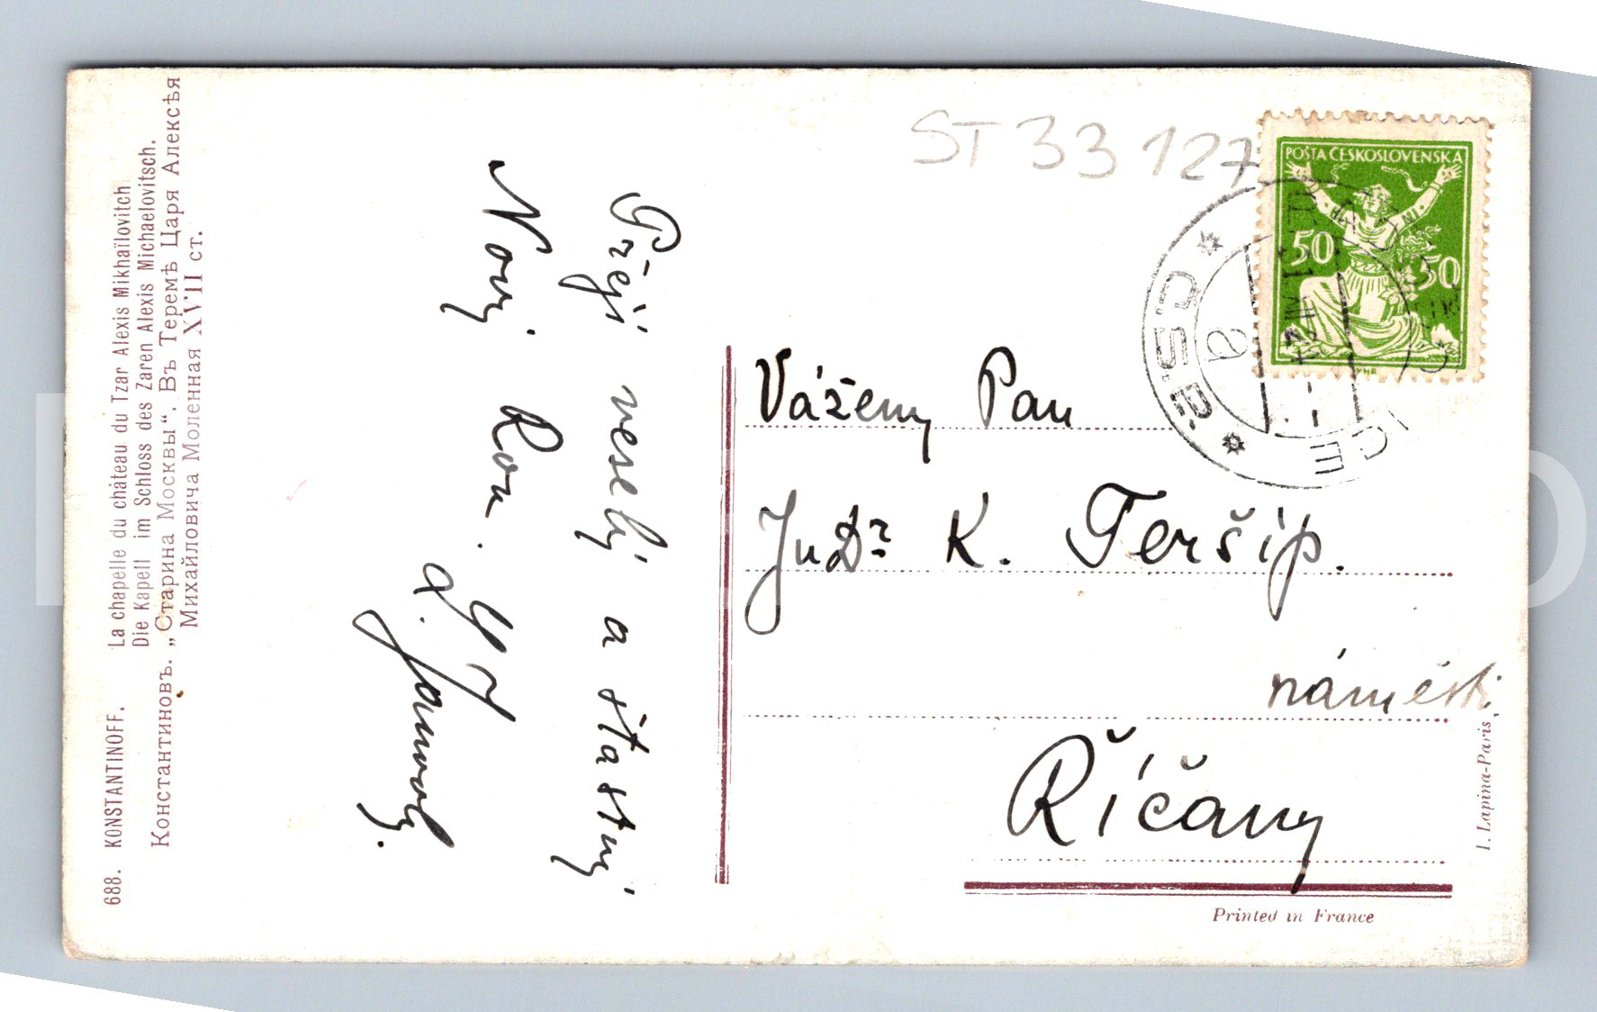 688. KONSTANTINOFF. La chapelle du château du Tzar Alexis Mikhaïlovitch
Die Kapell im Schloss des Zaren Alexis Michaelovitsch.
Константиновъ. „Старина Москвы“. Въ Теремѣ Царя Алексѣя
Михайловича Моленная XVII ст.
Přeji veselý a šťastný
Nový Rok.
ST 33 127
POŠTA ČESKOSLOVENSKÁ
50 50
ČSP.
a
Vážený Pan
JuDr K. Teršíp.
náměstí
Říčany
Printed in France
I. Lapina-Paris